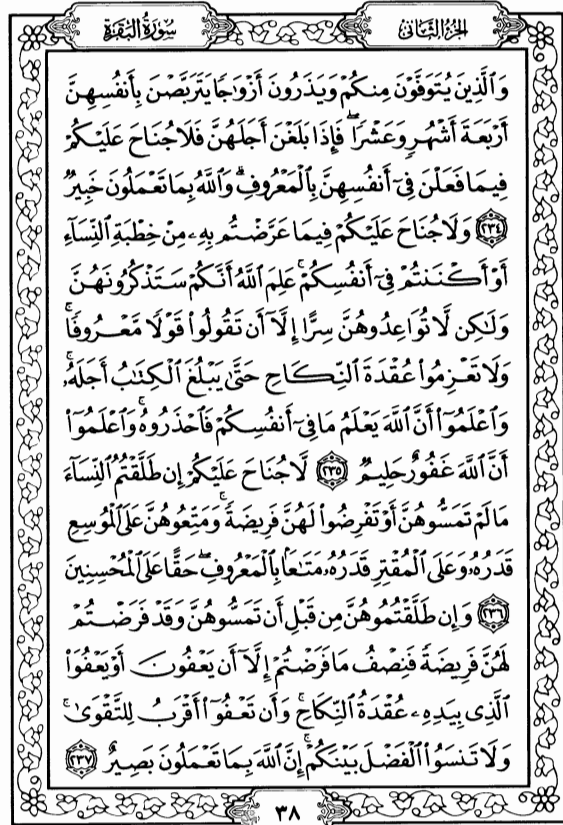 الجزء الثاني
سورة البقرة
وَٱلَّذِينَ يُتَوَفَّوۡنَ مِنكُمۡ وَيَذَرُونَ أَزۡوَٰجٗا يَتَرَبَّصۡنَ بِأَنفُسِهِنَّ
أَرۡبَعَةَ أَشۡهُرٖ وَعَشۡرٗاۖ فَإِذَا بَلَغۡنَ أَجَلَهُنَّ فَلَا جُنَاحَ عَلَيۡكُمۡ
فِيمَا فَعَلۡنَ فِيٓ أَنفُسِهِنَّ بِٱلۡمَعۡرُوفِۗ وَٱللَّهُ بِمَا تَعۡمَلُونَ خَبِيرٞ
٢٣٤ وَلَا جُنَاحَ عَلَيۡكُمۡ فِيمَا عَرَّضۡتُم بِهِۦ مِنۡ خِطۡبَةِ ٱلنِّسَآءِ
أَوۡ أَكۡنَنتُمۡ فِيٓ أَنفُسِكُمۡۚ عَلِمَ ٱللَّهُ أَنَّكُمۡ سَتَذۡكُرُونَهُنَّ
وَلَٰكِن لَّا تُوَاعِدُوهُنَّ سِرًّا إِلَّآ أَن تَقُولُواْ قَوۡلٗا مَّعۡرُوفٗاۚ
وَلَا تَعۡزِمُواْ عُقۡدَةَ ٱلنِّكَاحِ حَتَّىٰ يَبۡلُغَ ٱلۡكِتَٰبُ أَجَلَهُۥۚ
وَٱعۡلَمُوٓاْ أَنَّ ٱللَّهَ يَعۡلَمُ مَا فِيٓ أَنفُسِكُمۡ فَٱحۡذَرُوهُۚ وَٱعۡلَمُوٓاْ
أَنَّ ٱللَّهَ غَفُورٌ حَلِيمٞ ٢٣٥ لَّا جُنَاحَ عَلَيۡكُمۡ إِن طَلَّقۡتُمُ ٱلنِّسَآءَ
مَا لَمۡ تَمَسُّوهُنَّ أَوۡ تَفۡرِضُواْ لَهُنَّ فَرِيضَةٗۚ وَمَتِّعُوهُنَّ عَلَى ٱلۡمُوسِعِ
قَدَرُهُۥ وَعَلَى ٱلۡمُقۡتِرِ قَدَرُهُۥ مَتَٰعَۢا بِٱلۡمَعۡرُوفِۖ حَقًّا عَلَى ٱلۡمُحۡسِنِينَ
٢٣٦ وَإِن طَلَّقۡتُمُوهُنَّ مِن قَبۡلِ أَن تَمَسُّوهُنَّ وَقَدۡ فَرَضۡتُمۡ
لَهُنَّ فَرِيضَةٗ فَنِصۡفُ مَا فَرَضۡتُمۡ إِلَّآ أَن يَعۡفُونَ أَوۡ يَعۡفُوَاْ
ٱلَّذِي بِيَدِهِۦ عُقۡدَةُ ٱلنِّكَاحِۚ وَأَن تَعۡفُوٓاْ أَقۡرَبُ لِلتَّقۡوَىٰۚ
وَلَا تَنسَوُاْ ٱلۡفَضۡلَ بَيۡنَكُمۡۚ إِنَّ ٱللَّهَ بِمَا تَعۡمَلُونَ بَصِيرٌ ٢٣٧
٣٨